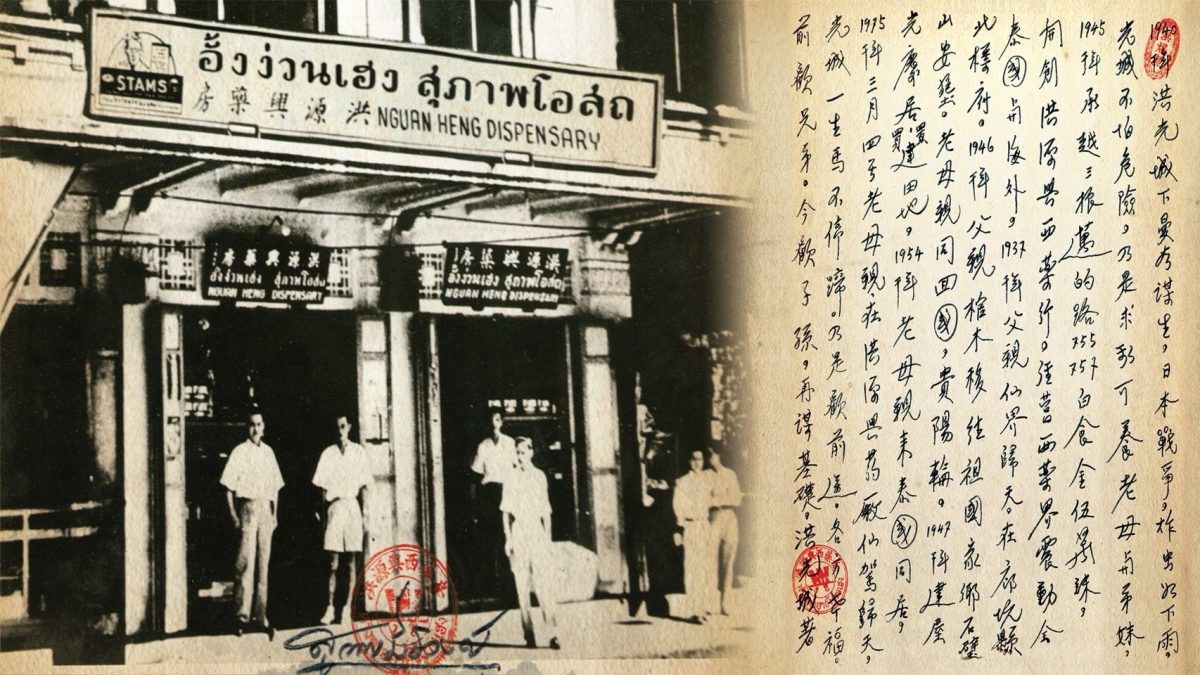 STAMS
อั้งง่วนเฮง สุภาพโอสถ
房藥興源洪 NGUAN HENG DISPENSARY
房藥興源洪
อั้งง่วน เฮง สุภาพโอสถ
NGUAN HENG DISPENSARY
房藥興源洪
อั้งง่วนเฮง สุภาพโอสถ
NGUAN HENG DISPENSARY
1940 洪光城下曼谷謀生,日本戰爭,炸虫如下雨,
光城不怕危險,乃是求利可養老母與弟妹,
1945 承越三振 的路755 757 白食金伍萬銖,
同創洪源興西藥行。經營西藥界震動全
泰國與海外,1937 父親仙界歸天。在 坑縣
北標府。1946 父親棺木移往祖國家鄉石壁
山安墓。老母親同回國,貴陽輪。1947 建屋
光 居置買建田地,1954 老母親來泰國同居,
1975 三月四号老母親在洪源興葯廠仙駕歸天,
光城一生馬不停蹄。乃是歡前途。各 幸福。
前歡兄弟。今歡子孫,再謀基礎,洪光城著